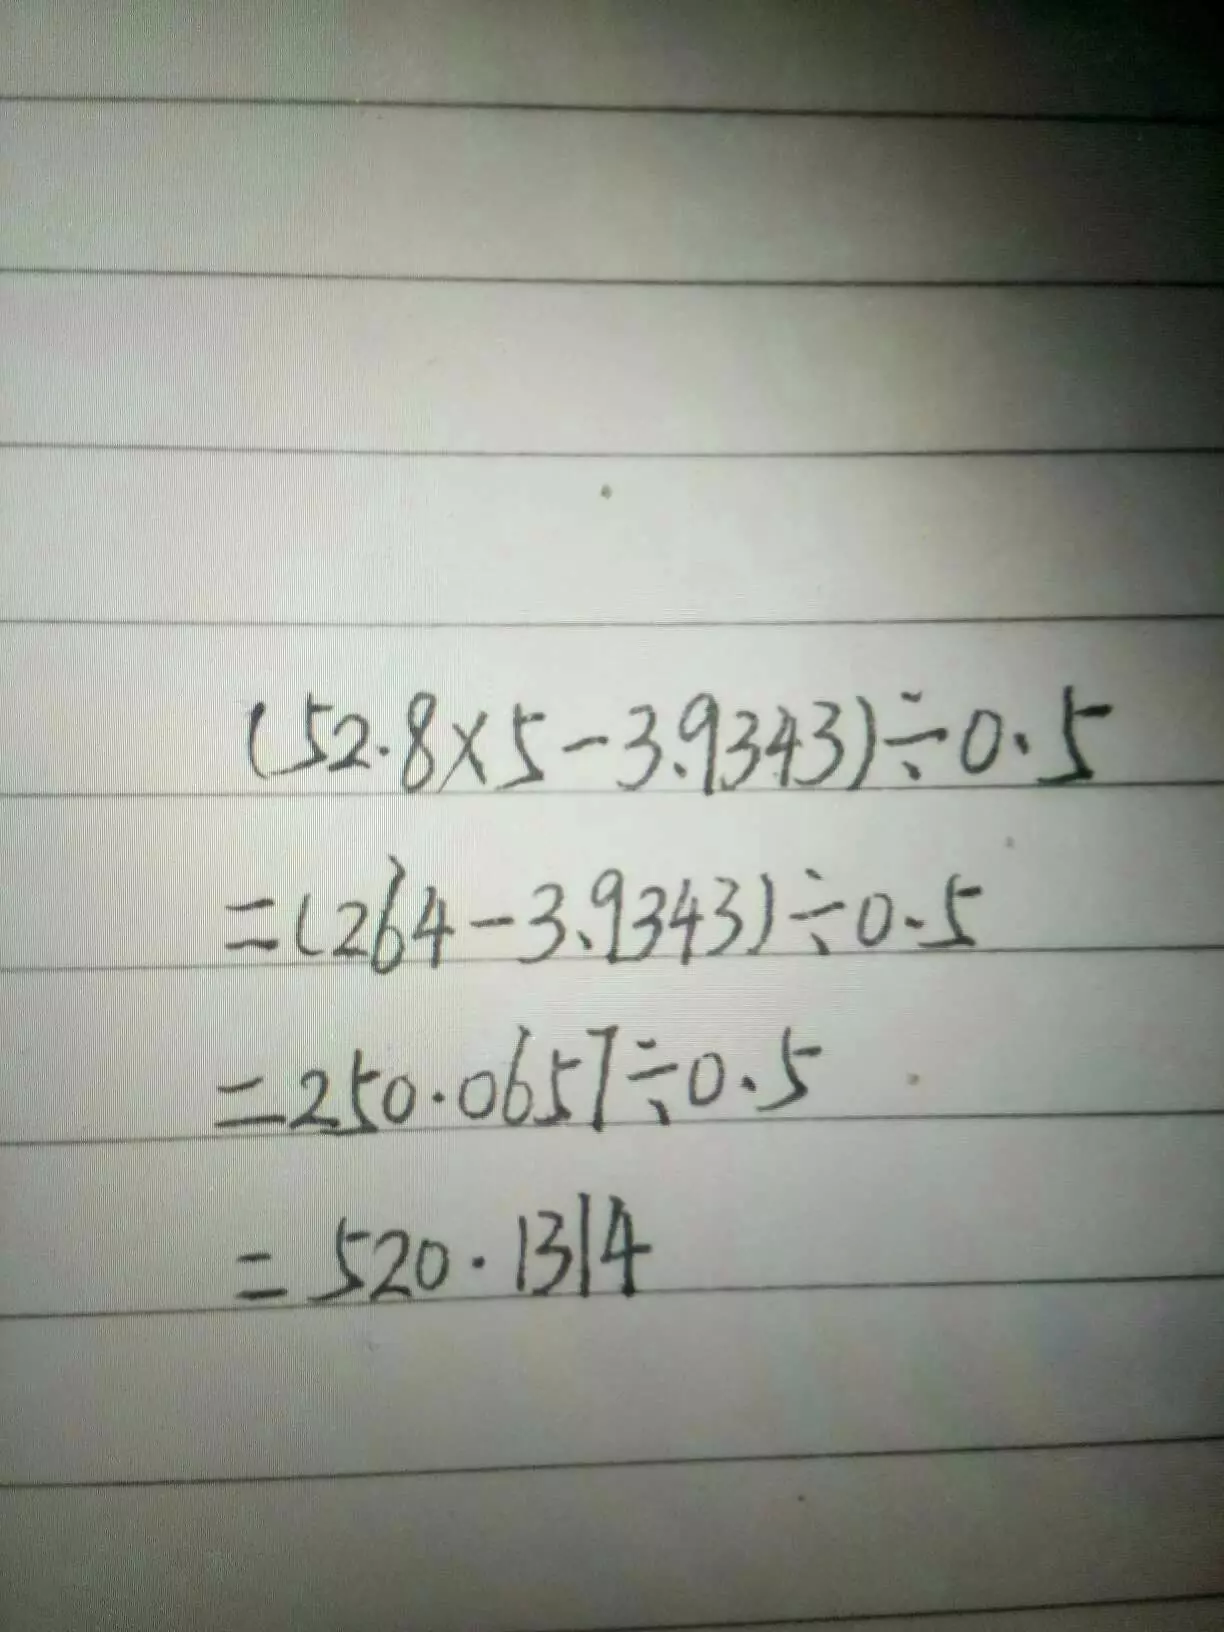 (52.8×5-3.9343)÷0.5
=(264-3.9343)÷0.5
=250.0657÷0.5
=520.1314